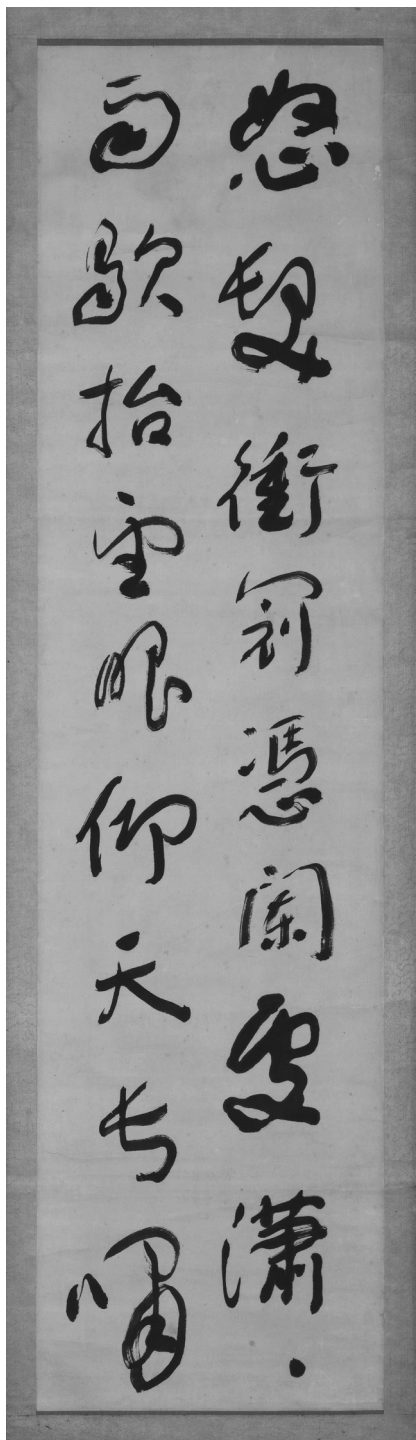 怒髮衝冠憑闌處瀟〻
雨歇抬望眼仰天長嘯